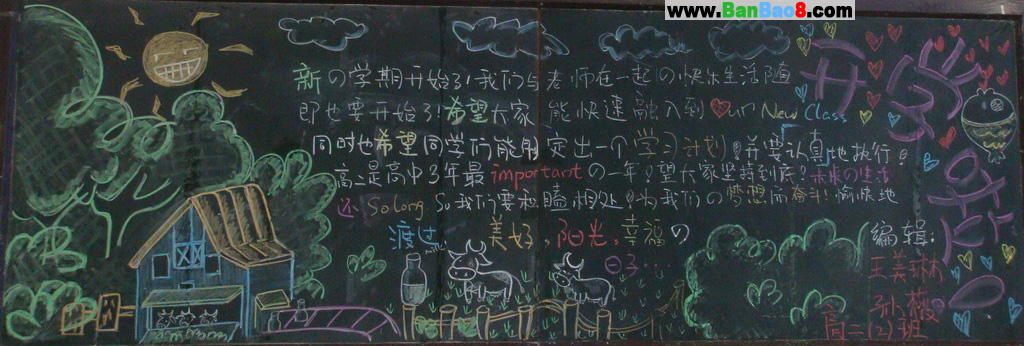 www.BanBao8.com
开学啦
新の学期开始了!我们与老师在一起の快乐生活随
即也要开始了!希望大家能快速融入到Our New Class
同时也希望同学们能够突出一个学习计划!并要认真地执行。
高二是高中3年最important の一年!望大家坚持到底!未来の生活
还 So long So 我们要和睦相处!为我们の梦想而奋斗!愉快地
渡过 美好,阳光,幸福の
日子...
编辑:
王美琳
孙薇
高二(2)班